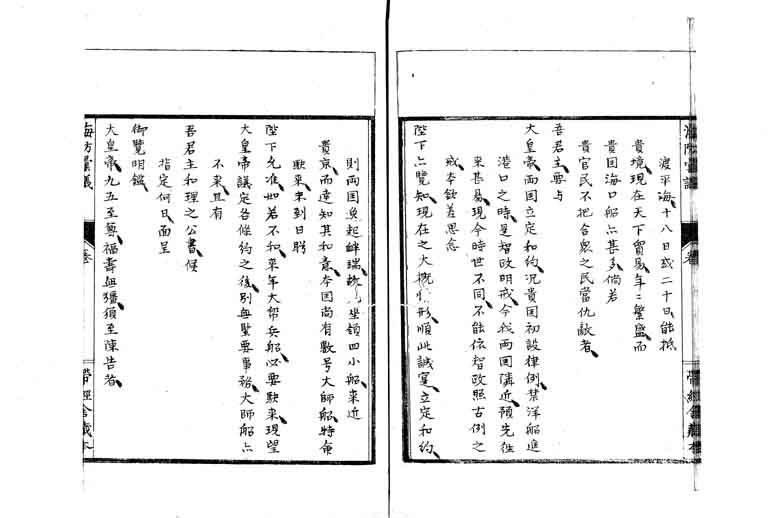 渡平海十八日或二十日能抵
貴境現在天下貿易年〻繁盛而
貴国海口船只甚多倘若
貴官民不把合衆之民當仇敵者
吾君主要与
大皇帝両国立定和約况貴国初設律例禁洋船進
港口之時是智政明戒今我両国隣近預先往
来甚易現今時世不同不能依智政照古例之
戒本欽差思念
陛下亦覽知現在之大概情形順此誠寔立定和約
海防彙議
巻
帶經舎藏本
則両国免起衅端故坐領四小船来近
貴京而達知其和意本国尚有数号大師船特命
駛来未到日盼
陛下允准如若不和来年大帮兵船必要駛来現望
大皇帝議定各條約之後別無緊要事務大師船亦
不来且有
吾君主和理之公書候
指定何日面呈
御覽明鑑
大皇帝九五至尊福壽無彊須至陳告者
海防彙議
巻
帶經舎藏本